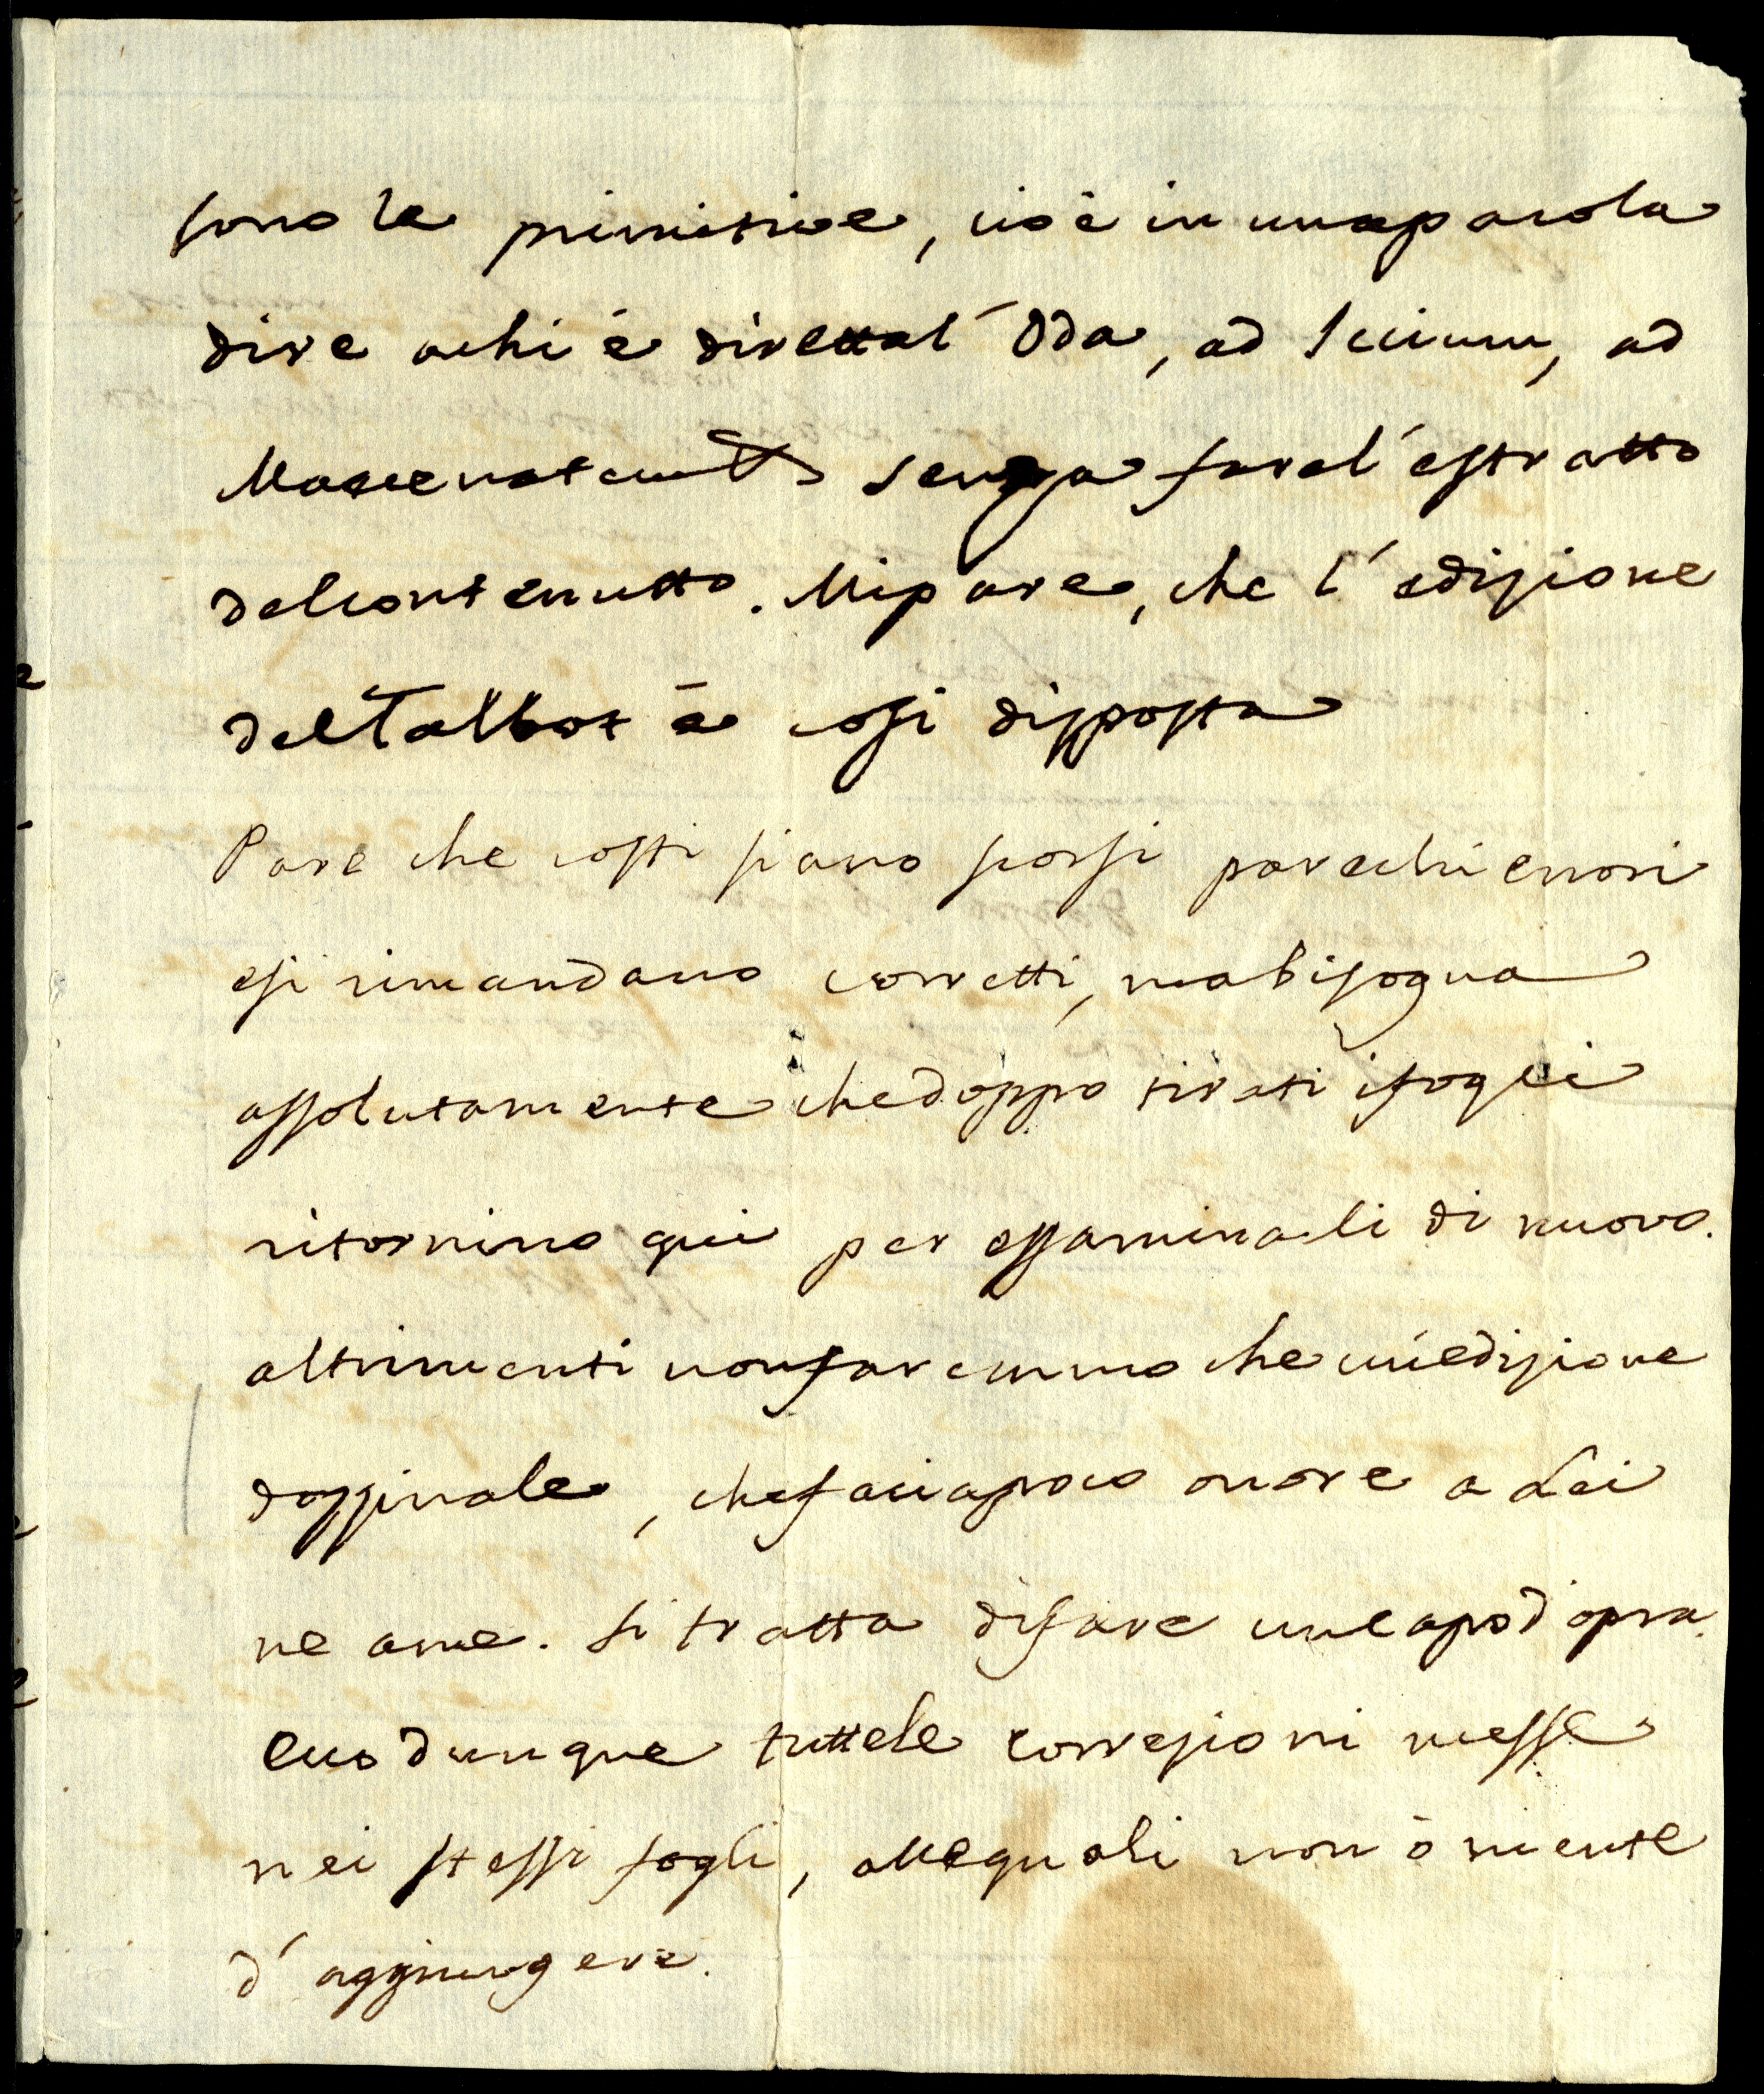 sono le primitive, cioè in una parola
dire a chi è diretta l'Oda, ad
Maecenatem senza fare l'estratto
del contenutto. Mi pare, che l'edizione
del Talbot è cosi disposta
Pare che costi siano scorsi parechi errori
e si rimandano corretti, ma bisogna
assolutamente che doppo tirati i fogli
ritornino qui per essaminali di nuovo.
altrimenti non faremmo che un'edizione
dozzinale, che facia poco onore a Lei
ne a me. Si tratta di fare un capo d'opra.
Ecco dunque tutte le correzioni messe
nei stessi fogli, alle quali non ò niente
d'aggiungere.